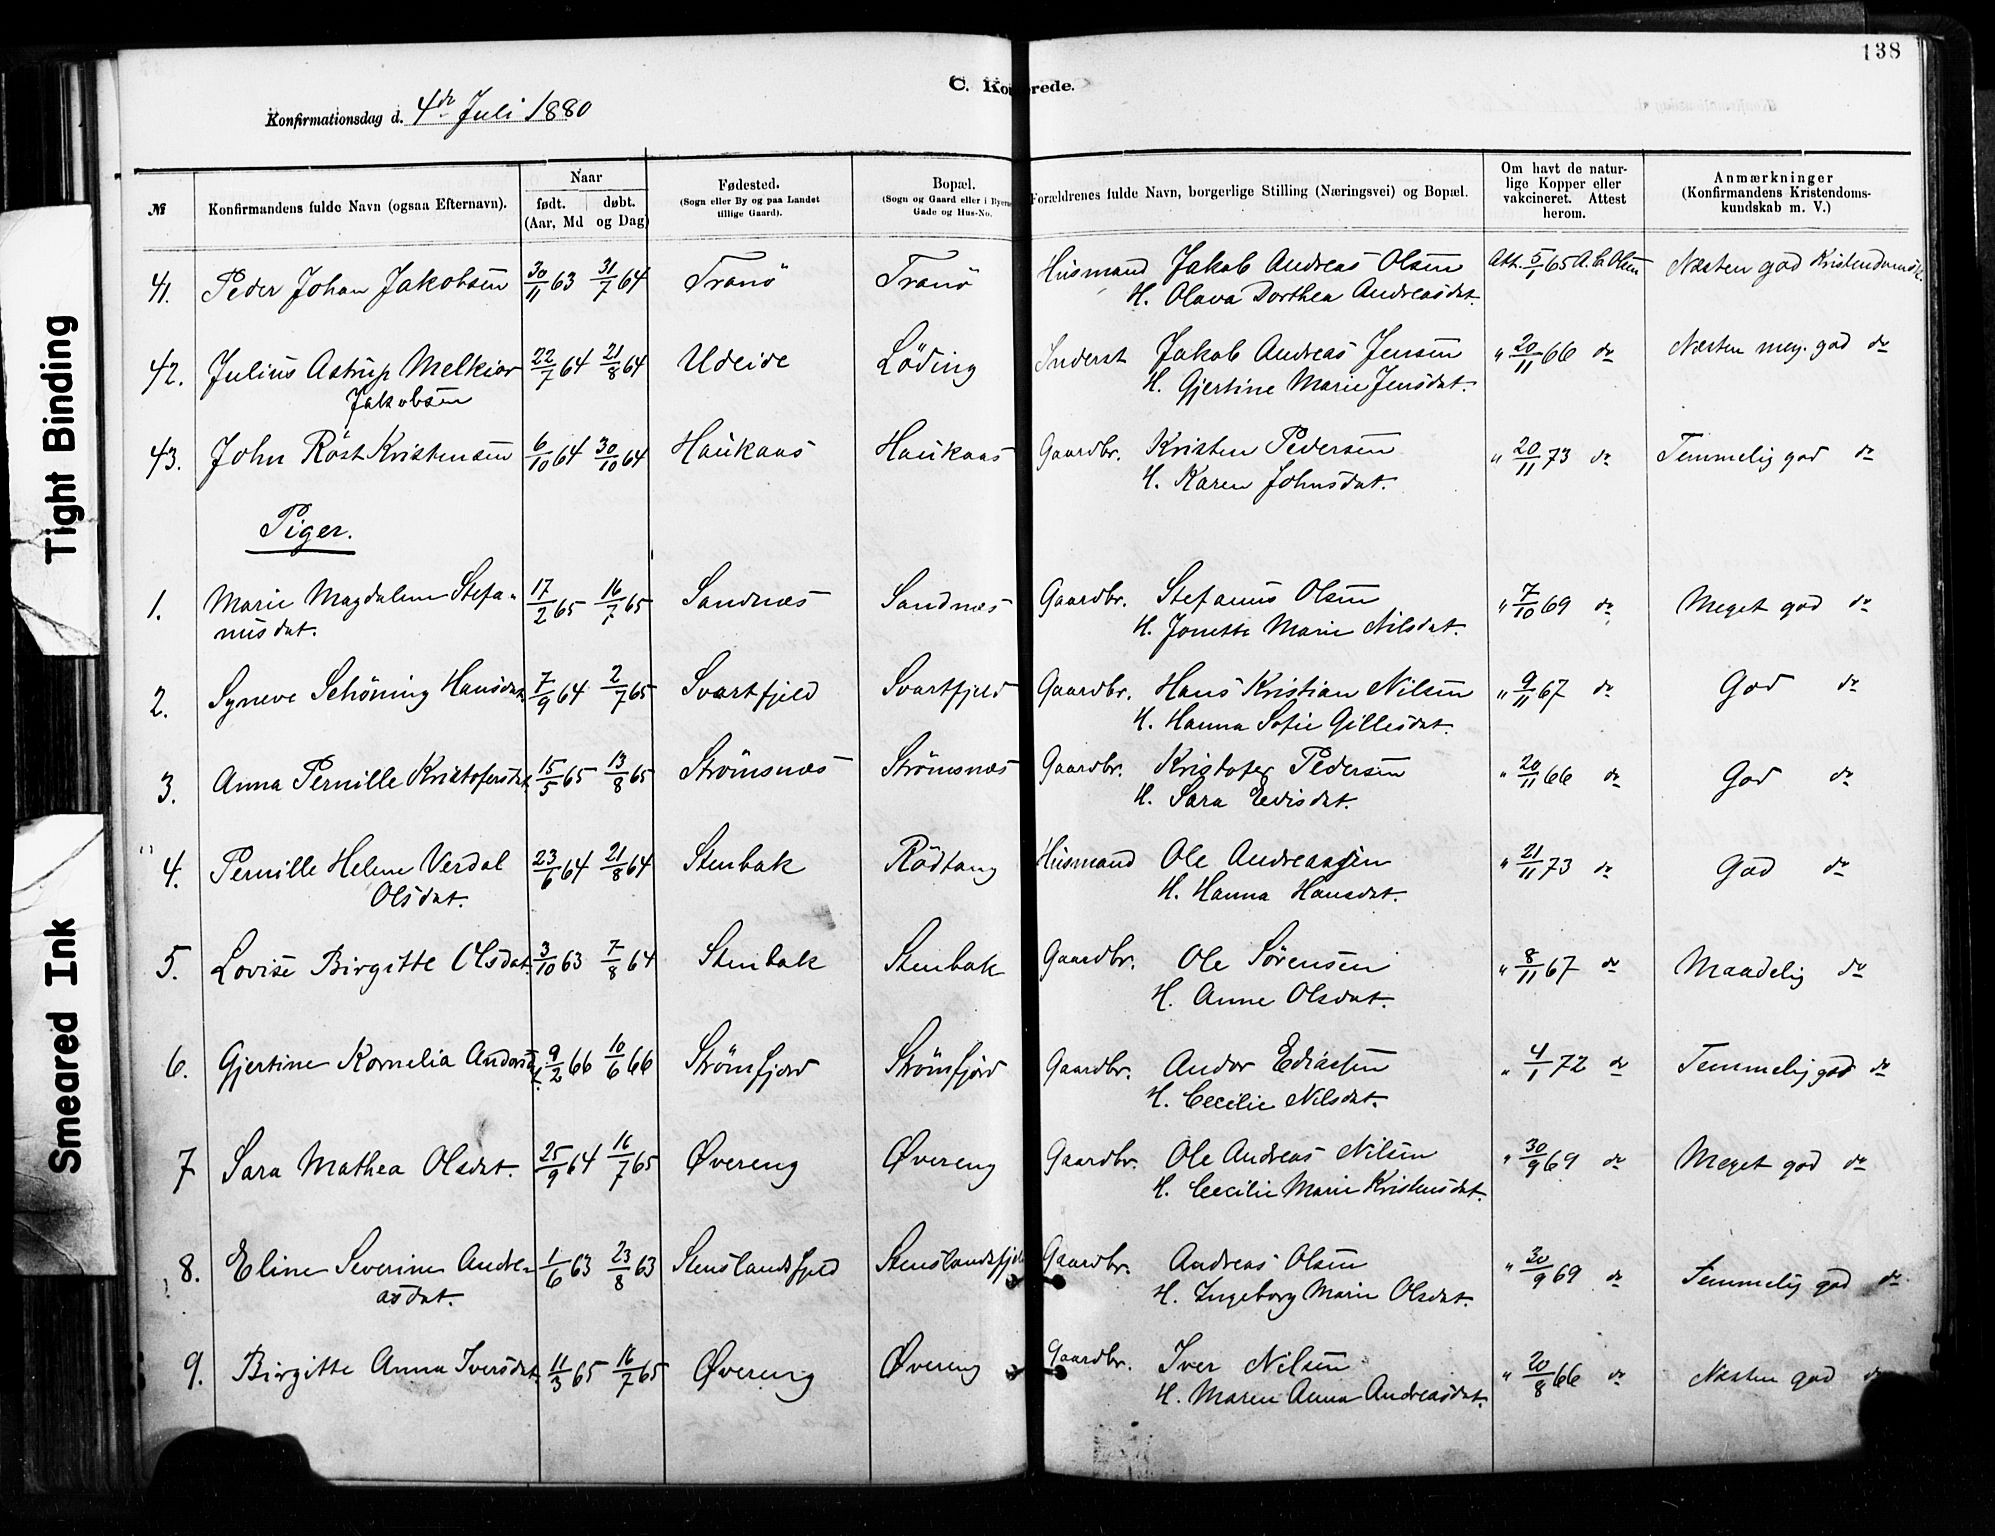 138
C. Ko rede.
Konfirmationsdag d. 4de Juli 1880
№
Konfirmandens fulde Navn (ogsaa Efternavn).
Naar
født. døbt.
(Aar, Md og Dag)
Fødested.
(Sogn eller By og paa Landet
tillige Gaard).
Bopæl.
(Sogn og Gaard eller i Byerne
Gade og Hus-No.
Forældrenes fulde Navn, borgerlige Stilling (Næringsvei) og Bopæl.
Om havt de natur-
lige Kopper eller
vakcineret. Attest
herom.
Anmærkninger
(Konfirmandens Kristendoms-
kundskab m. V.)
41. Peder Johan Jakobsen 30/11 63 31/7 64 Tranö Tranö Husmand Jakob Andreas Olsen Att. 5/1 65 A. C. Olsen Næsten god Kristendomsk.
H. Olava Dorthea Andreasdat.
42. Julius Astrup Melkior 22/7 64 21/8 64 Udeide Löding Inderst Jakob Andreas Jensen " 20/11 66 do Næsten meg. god do
Jakobsen H. Gjertine Marie Jensdat.
43. John Röst Kristensen 6/10 64 30/10 64 Haukaas Haukaas Gaardbr. Kristen Pedersen " 20/11 73 do Temmelig god do
H. Karen Johnsdat.
Piger.
1. Marie Magdalene Stefa- 17/2 65 16/7 65 Sandnæs Sandnæs Gaardbr. Stefanus Olsen " 7/10 69 do Meget god do
nusdat. H. Jonette Marie Nilsdat.
2. Syneve Schöning Hansdat. 7/9 64 2/7 65 Svartfjeld Svartfjeld Gaardbr. Hans Kristian Nilsen " 9/11 67 do God do
H. Hanna Sofie Gillesdat.
3. Anna Pernille Kristofersdat. 15/5 65 13/8 65 Strömsnæs Strömsnæs Gaardbr. Kristofer Pedersen " 20/11 66 do God do
H. Sara Edisdat.
4. Pernille Helene Verdal 23/6 64 21/8 64 Stenbak Rödtang Husmand Ole Andreassen " 21/11 73 do God do
Olsdat. H. Hanna Hansdat.
5. Lovise Birgitte Olsdat. 3/10 63 7/8 64 Stenbak Stenbak Gaardbr. Ole Sørensen " 8/11 67 do Maadelig do
H. Anne Olsdat.
6. Gjertine Kornelia Andorsdat. 9/2 66 10/6 66 Strömfjord Strömfjord Gaardbr. Andor Ediassen " 4/1 72 do Temmelig god do
H. Cecilie Nilsdat.
7 Sara Mathea Olsdat. 25/9 64 16/7 65 Øvereng Øvereng Gaardbr. Ole Andreas Nilsen " 30/9 69 do Meget god do
H. Cecilie Marie Kristensdat.
8. Eline Severine Andre- 1/6 63 23/8 63 Stenslandsfjeld Stenslandsfjeld Gaardbr. Andreas Olsen " 30/9 69 do Temmelig god do
asdat. H. Ingeborg Marie Olsdat.
9. Birgitte Anna Iversdat. 11/3 65 16/7 65 Øvereng Øvereng Gaardbr. Iver Nilsen " 20/8 66 do Næsten god do
H. Maren Anna Andreasdat.
Tight Binding
Smeared Ink